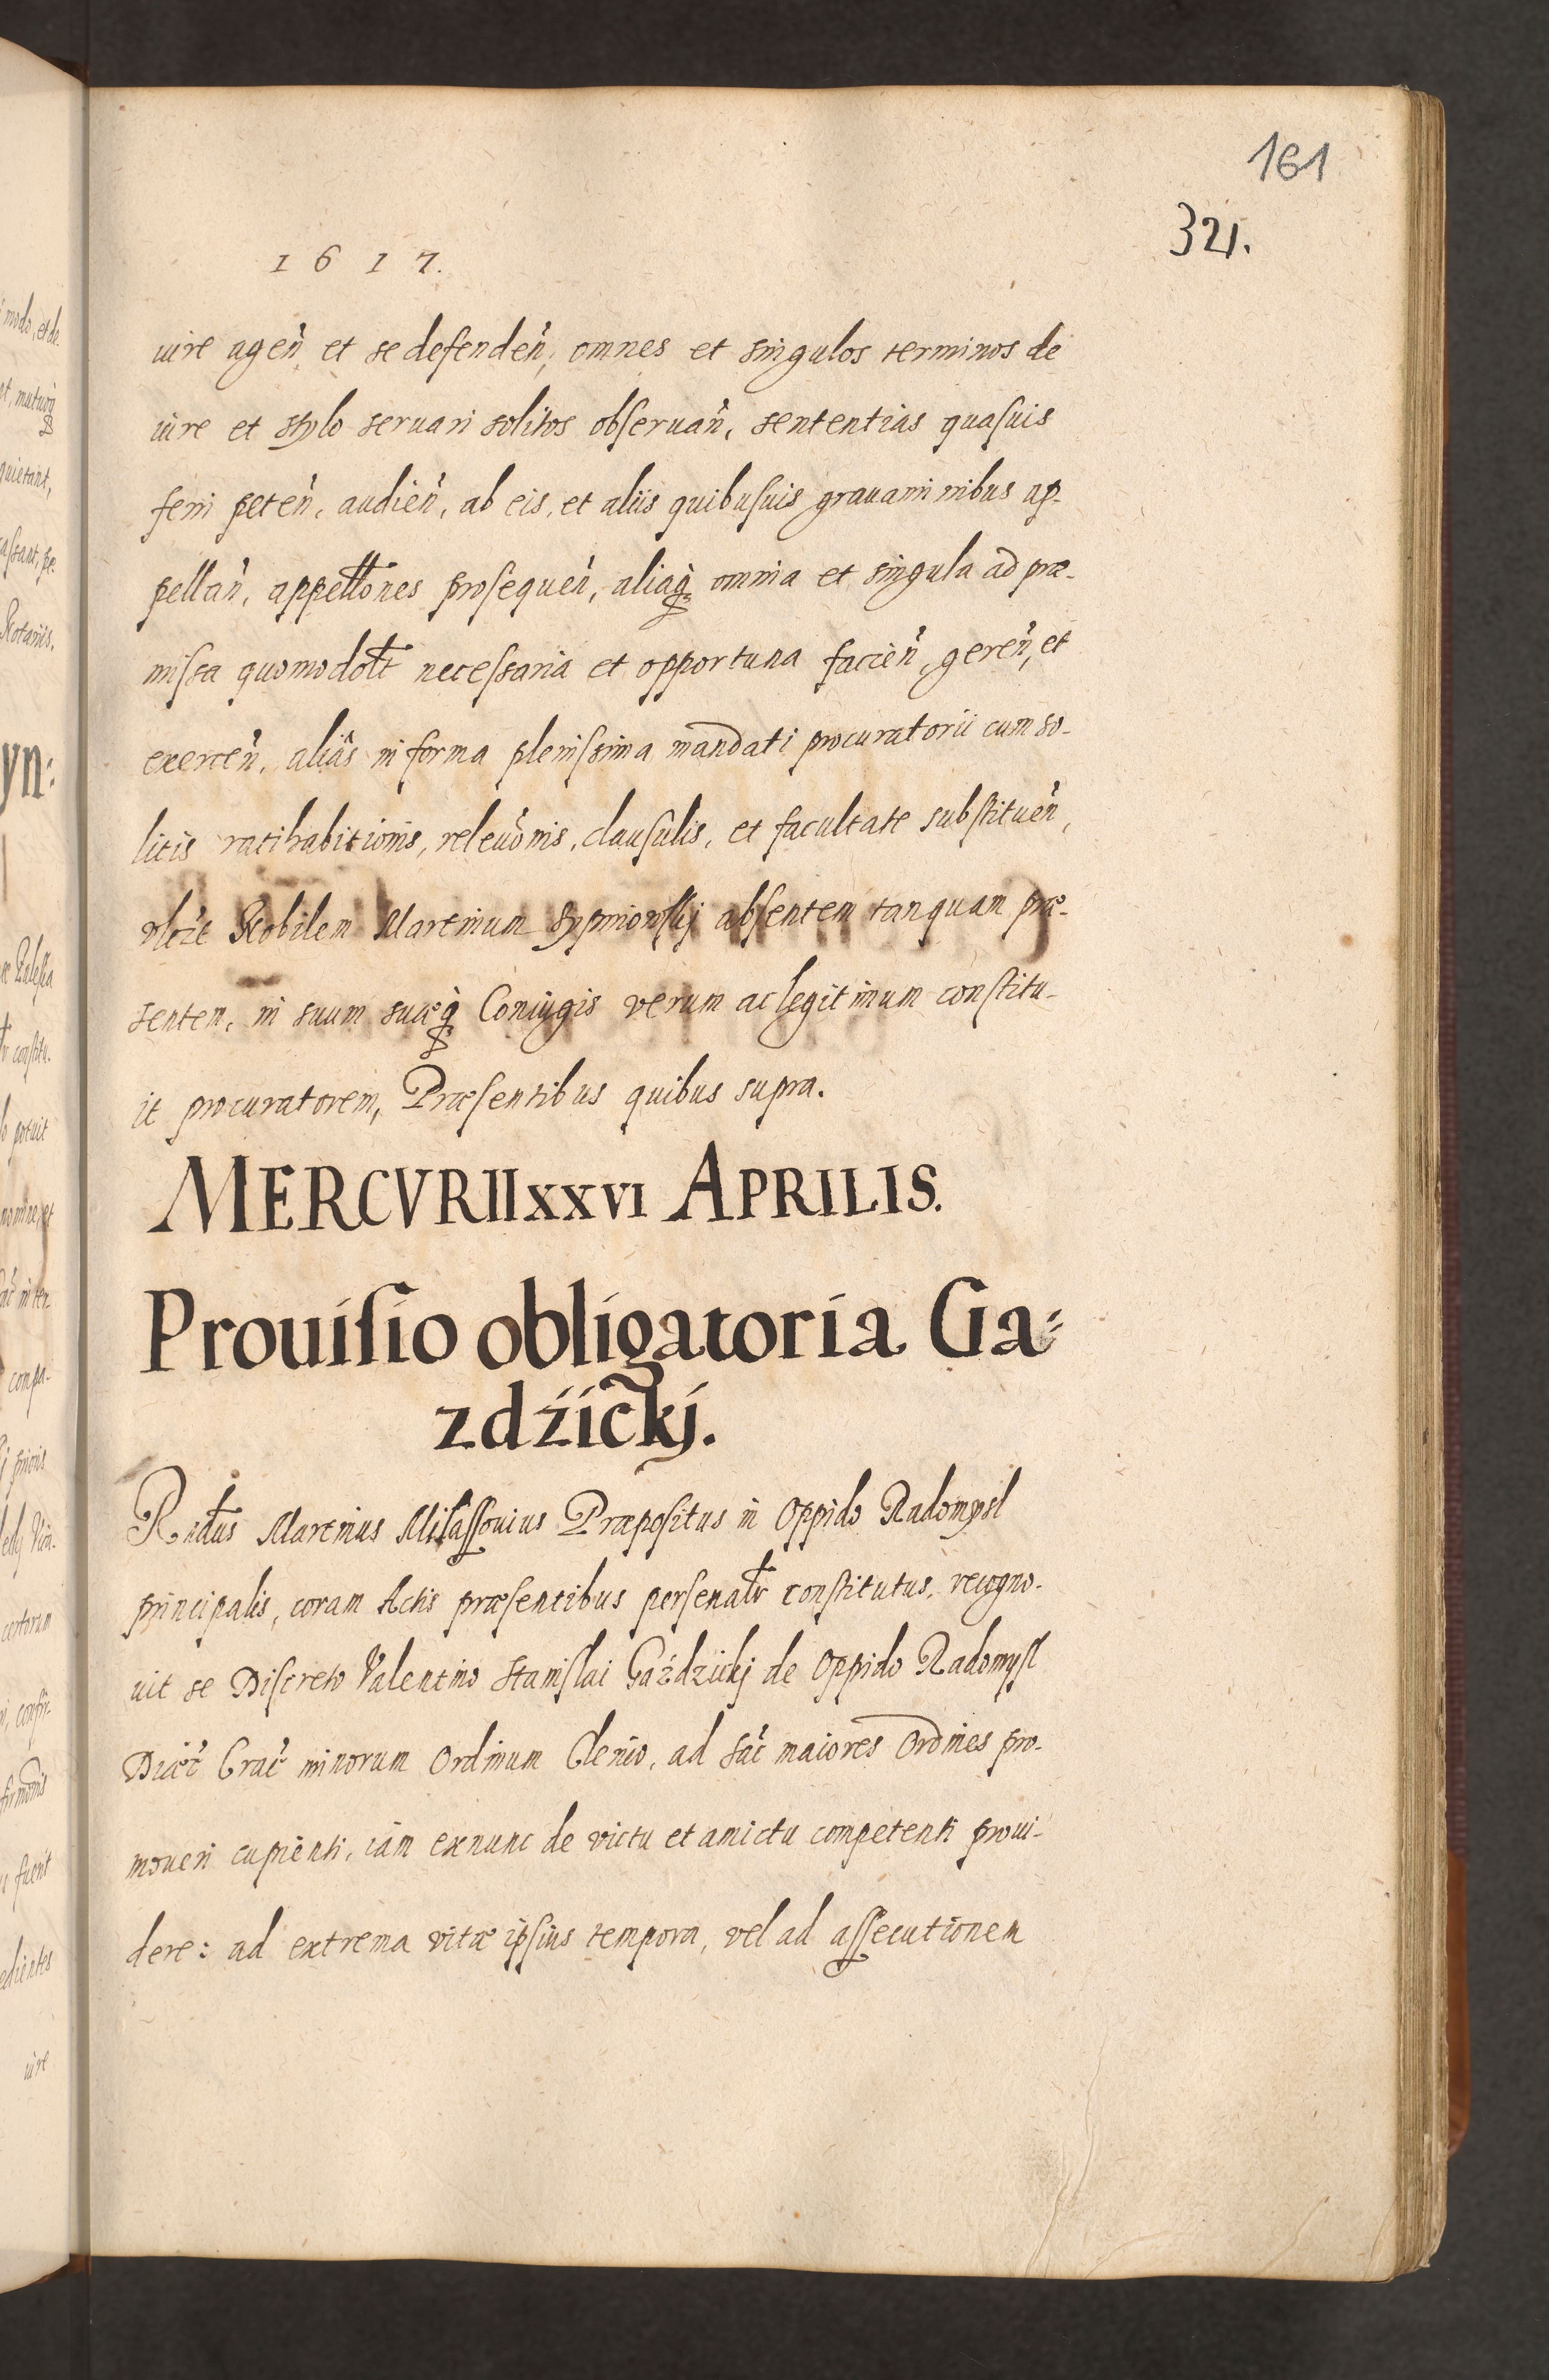 161
321.
1617.
iure agen̄ et se defenden̄, omnes et singulos terminos de
iure et stylo seruari solitos obseruan̄, sententias quasuis
ferri peten̄, audien̄, ab eis, et aliis quibusuis grauaminibus ap-
pellan̄, appellōnes prosequen̄, aliaq; omnia et singula ad præ-
missa quomodolt necessaria et opportuna facien̄, geren̄, et
exercen̄, aliâs in forma plenissima mandati procuratorii cum so-
litis ratihabitionis, releuōnis, clausulis, et facultate substituen̄,
Nobilem Martinum absentem tanquam præ-
sentem, in suum suæq; Coniugis verum ac legitimum constitu-
it procuratorem, Præsentibus quibus supra.
MERCVRII XXVI APRILIS.
Prouisio obligatoria Ga-
zdźickj.
Rndus Martinus Milassouius Præpositus in Oppido Radomysl
principalis, coram Actis præsentibus personalr constitutus, recogno-
uit se Discreto Valentino Stanislai Gaździckj de Oppido Radomysl
Diæc̄ Crac̄ minorum Ordinum Clerico, ad sac̄ maiores Ordines pro-
moueri cupienti, iâm exnunc de victu et amictu competenti proui-
dere: ad extrema vitæ ipsius tempora, vel ad assecutionem